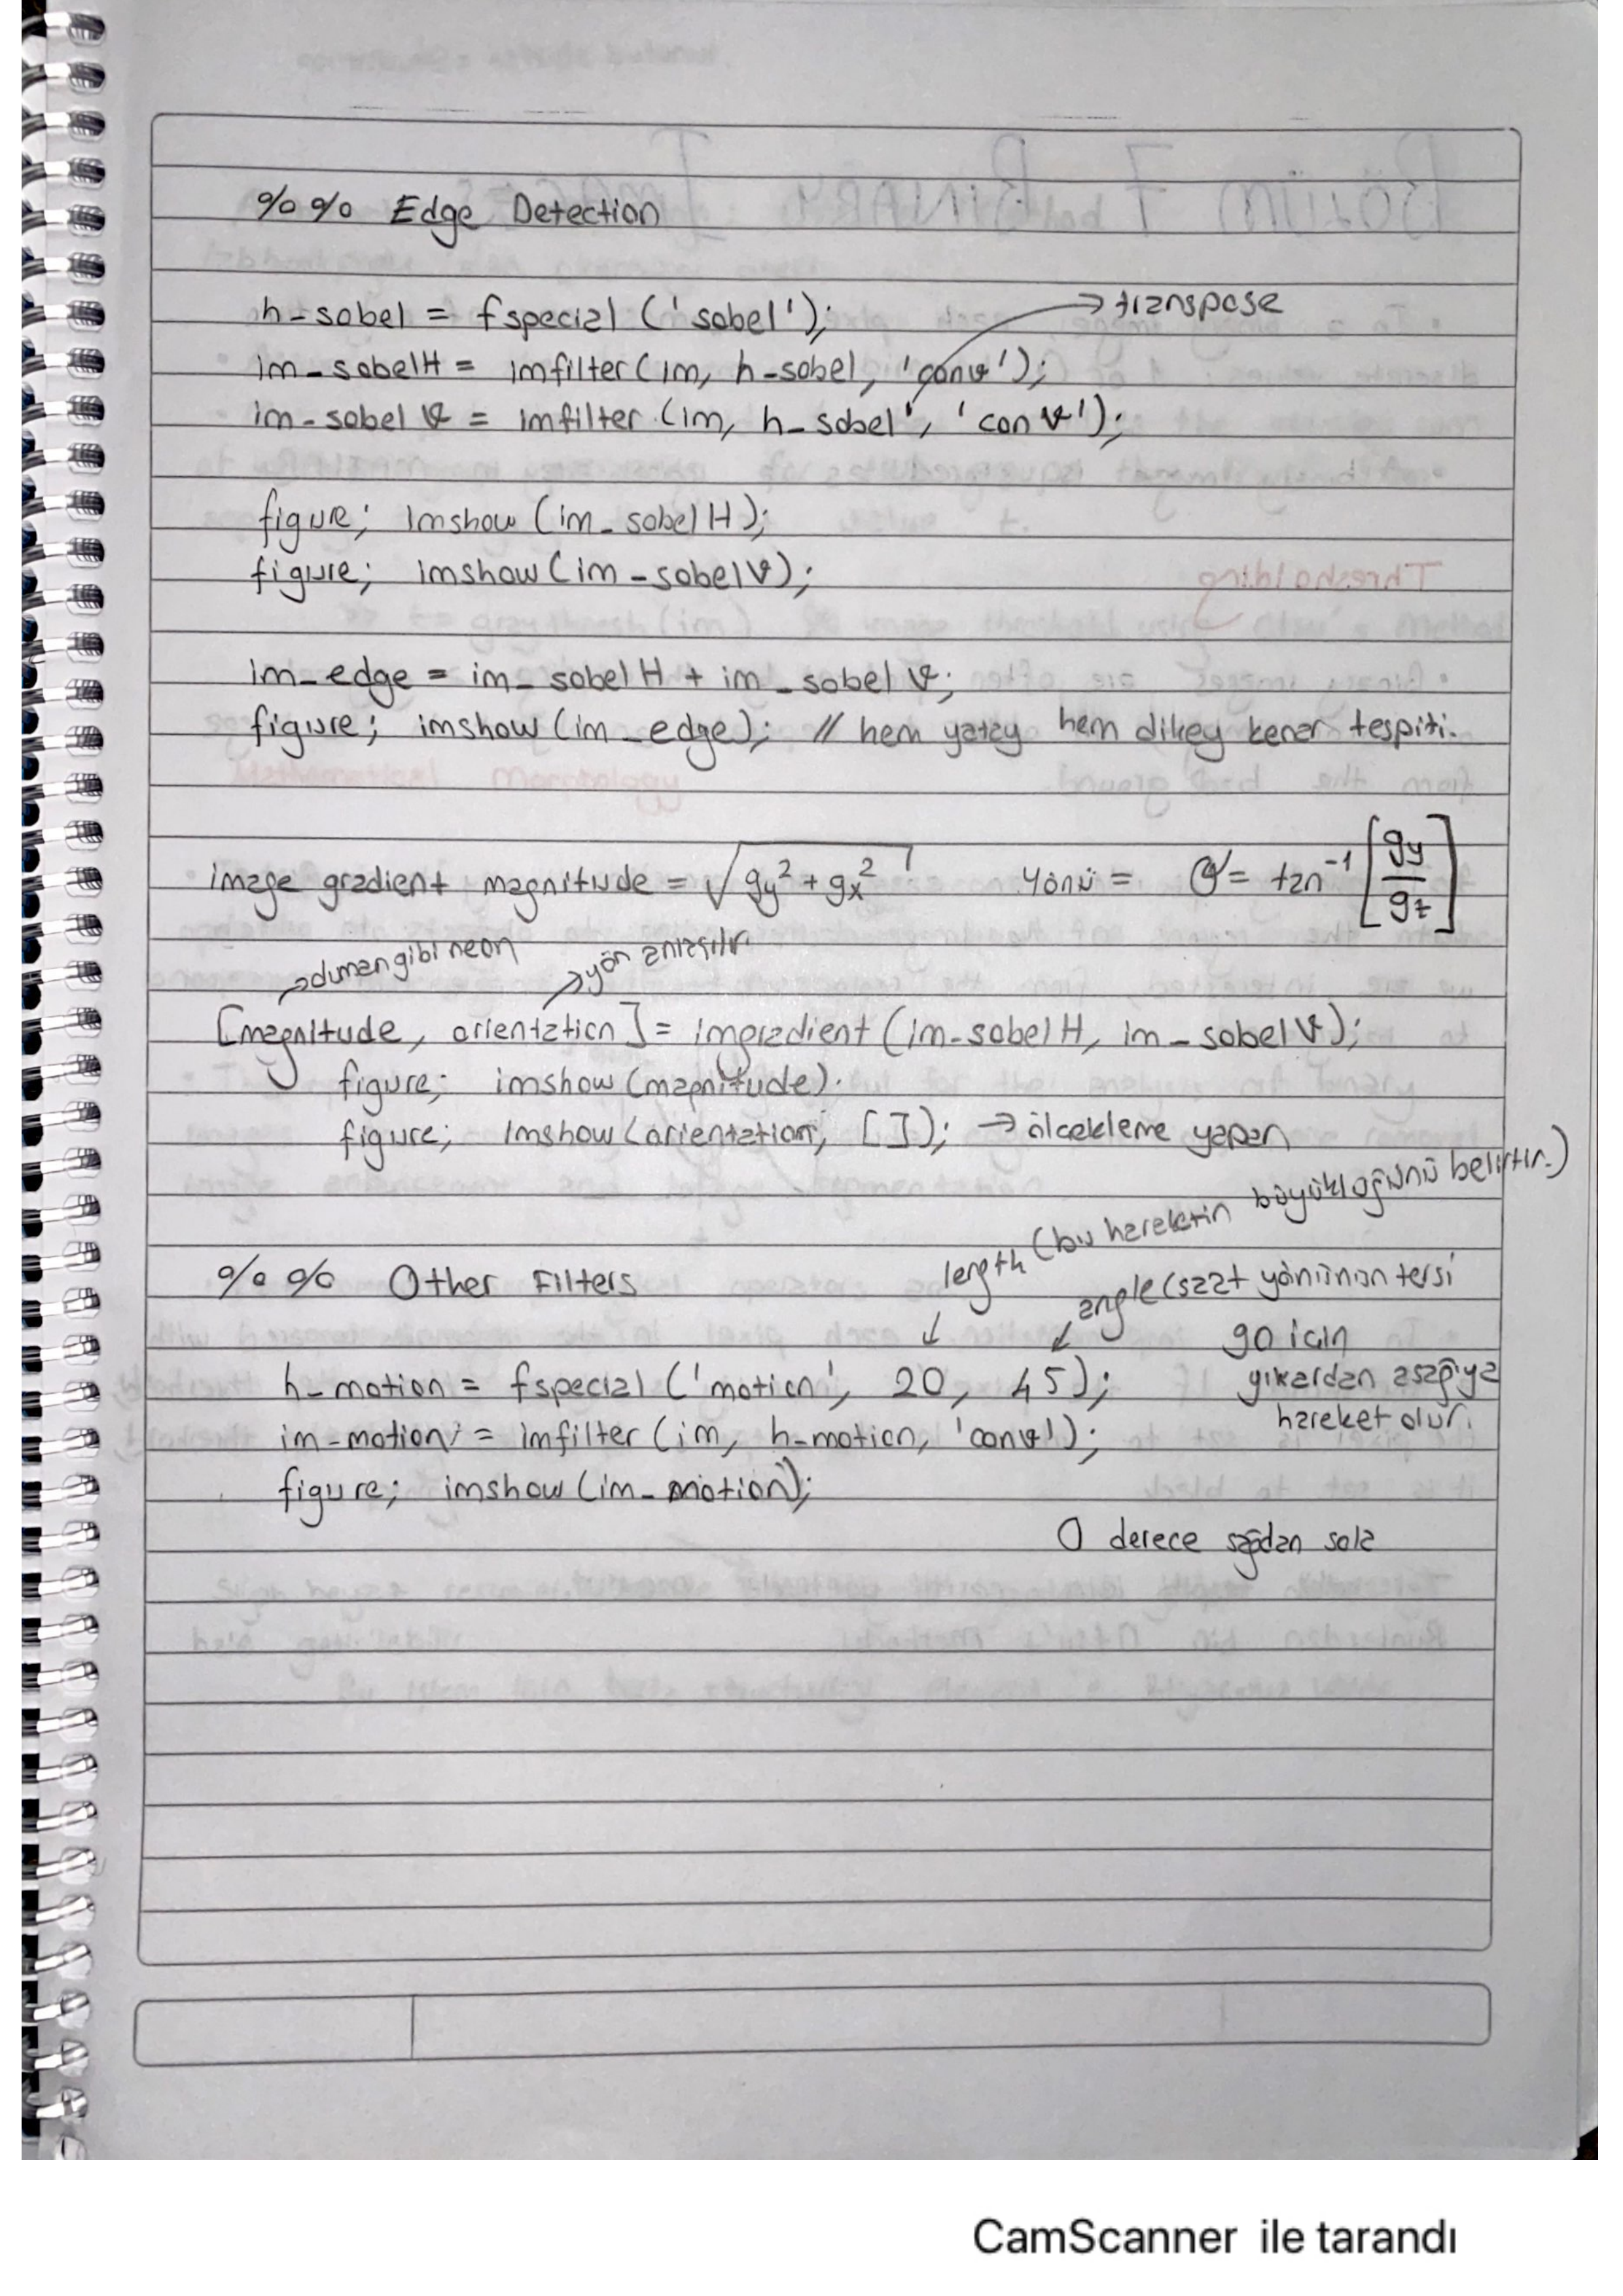 %% Edge Detection
h-sobel = fspecial ('sobel');
→ transpose
im-sobelH = imfilter (im, h-sobel, 'conv');
im-sobel V = imfilter (im, h_sobel', 'conv');
figure; imshow (im_sobel H);
figure; imshow (im-sobelV);
im_edge = im_sobel H + im_sobel V;
figure; imshow (im_edge); // hem yatay hem dikey kenar tespiti.
image gradient magnitude = √gy² + gx² Yönü = θ = tan⁻¹ [gy/gz]
→ duman gibi neon → yön anlaşılır.
[magnitude, orientation] = imgradient (im-sobelH, im-sobelV);
figure; imshow (magnitude).
figure; imshow (orientation, [ ]); → ölcekleme yapan
length (bu hareketin büyükloğünü belirtir.)
%% Other Filters
angle (saat yönünün tersi
90 icin
yukardan asağıya
hareket olur.
h-motion = fspecial ('motion', 20, 45);
im-motion = imfilter (im, h-motion, 'conv');
figure; imshow (im-motion);
0 derece sağdan sola
CamScanner ile tarandı